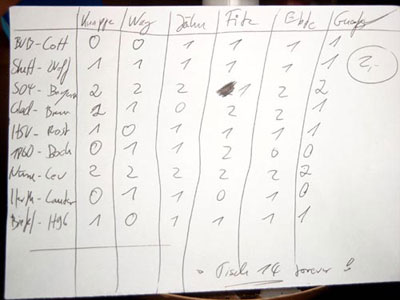 Knuppe Way Jähn Fitz Ende
BVB-Cott 0 0 1 1 1 1
Stutt-Wolf 1 1 1 1 1 1
2,-
S04-Bayern 2 2 2 1 2 2
Glad-Brem 2 1 0 2 2 1
HSV-Rost 1 0 1 1 1 1
1860-Boch 0 1 1 2 0 0
Nürn-Lev 2 2 2 2 2 2
Hertha- 0 1 1 0 1 0
Biel-H96 1 0 1 1 1 1
Tisch 14 forever !